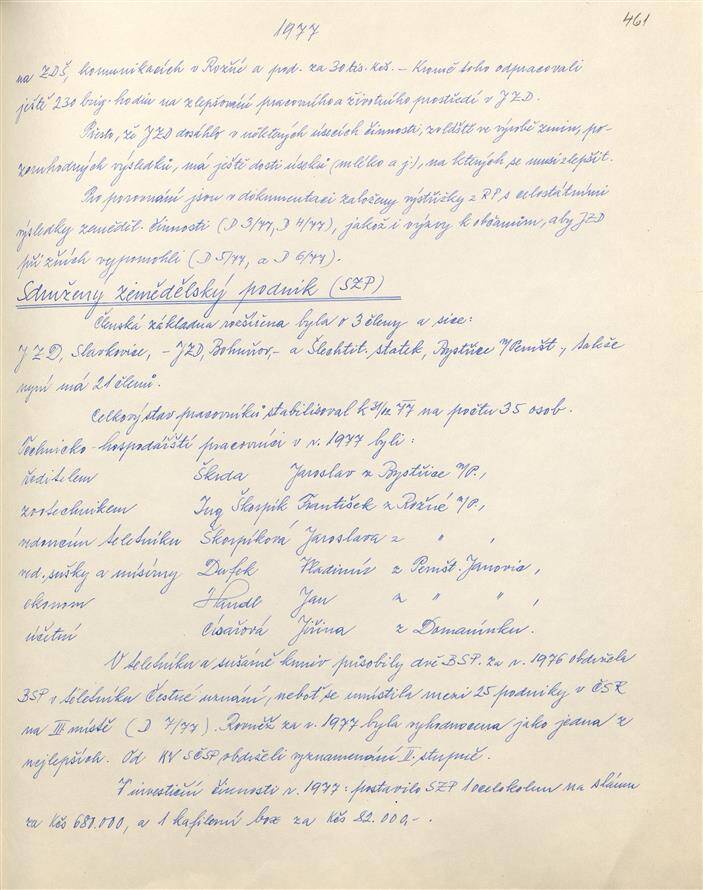 1977
461
na ZDŠ, komunikacích v Rožné a pod. za 30 tis. kčs. – Kromě toho odpracovali
ještě 230 brig. hodin na zlepšování pracovního a životního prostředí v JZD.
Přesto, že JZD dosáhlo v některých úsecích činnosti, zvláště ve výrobě zrnin, po-
zoruhodných výsledků, má ještě dosti úseků (mléko a j), na kterých se musí zlepšit.
Pro porovnání jsou v dokumentaci založeny výstřižky z RP s celostátními
výsledky zeměděl. činnosti (D 3/77, D 4/77), jakož i výzvy k občanům, aby JZD
při žních vypomohli (D 5/77, a D 6/77).
Sdružený zemědělský podnik (SZP)
Členská základna rozšířena byla o 3 členy a sice:
JZD, Slavkovice, – JZD, Bohuňov, – a Šlechtit. statek, Bystřice n/Pernšt., takže
nyní má 21 členů.
Celkový stav pracovníků stabilisoval k 31/12 77 na počtu 35 osob.
Technicko-hospodářští pracovníci v r. 1977 byli:
ředitelem Škrda Jaroslav z Bystřice n/P.,
zootechnikem Ing Škorpík František z Rožné n/P.,
vedoucím teletníku Škorpíková Jaroslava z " ,
ved. sušky a mísírny Dufek Vladimír z Pernšt. Janovic,
ekonom Handl Jan z " " ,
účetní Císařová Jiřina z Domanínku.
V teletníku a sušárně krmiv působily dvě BSP. za r. 1976 obdržela
BSP v teletníku Čestné uznání, neboť se umístila mezi 25 podniky v ČSR
na III místě (D 7/77). Rovněž za r. 1977 byla vyhodnocena jako jedna z
nejlepších. Od KV SČSP obdrželi vyznamenání II. stupně.
V investiční činnosti r. 1977: postavilo SZP 1 ocelokolnu na slámu
za Kčs 680.000, a 1 kafilerní box za Kčs 82.000,-.